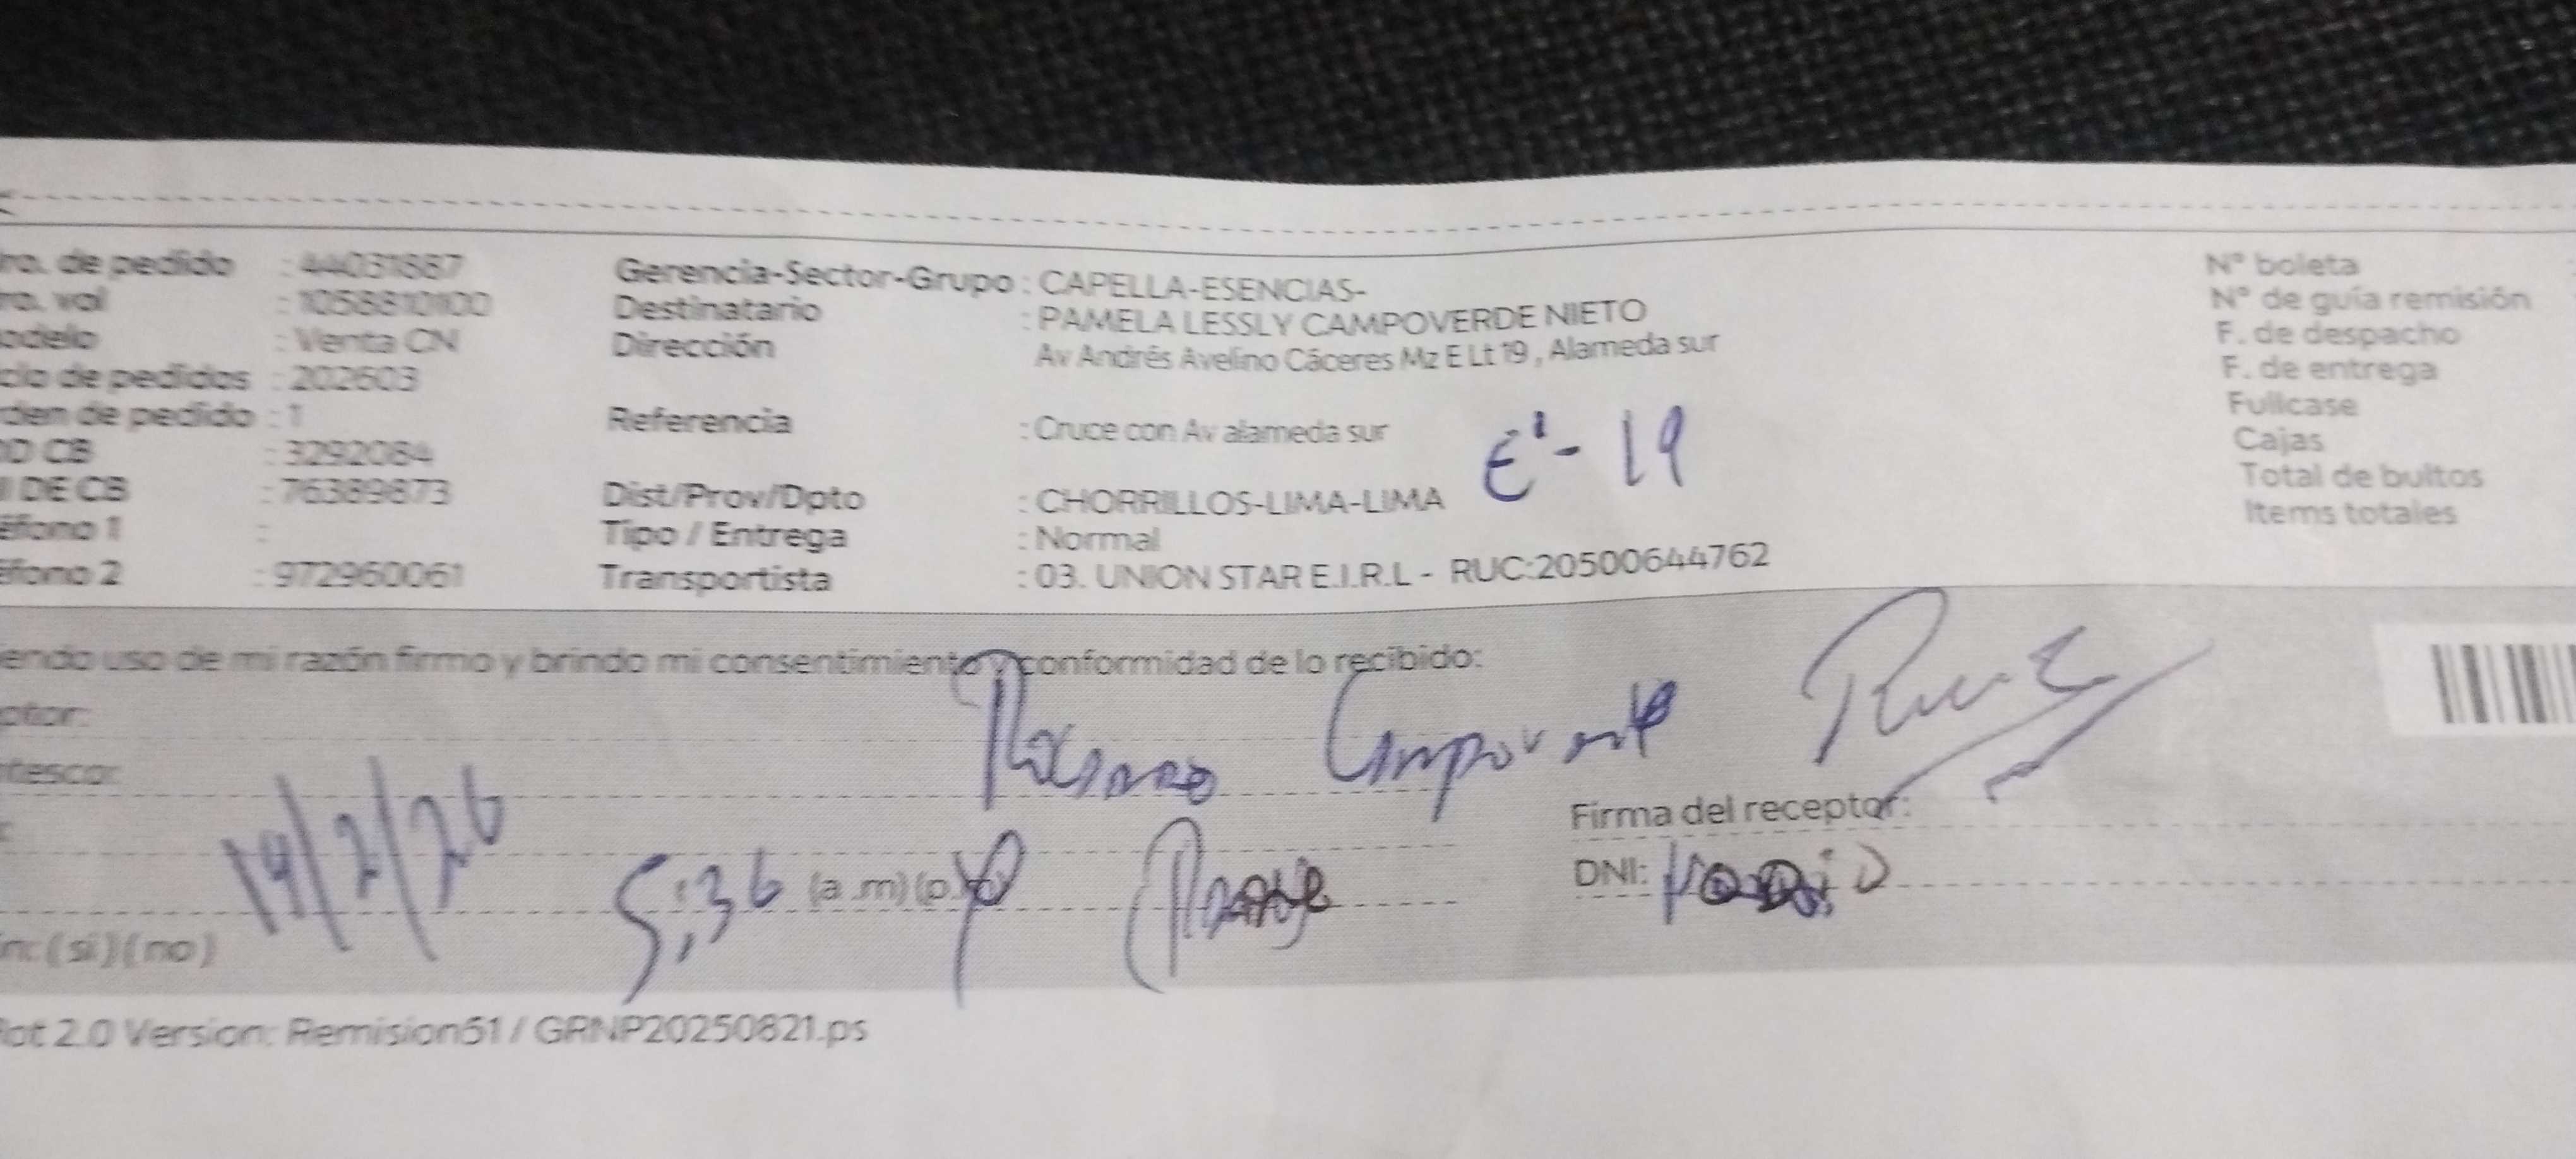 ro. de pedido : 44031887
ro. val : 1058810100
odelo : Venta CN
clo de pedidos : 202603
rden de pedido : 1
D CB : 3292084
I DE CB : 76389873
éfono 1 :
éfono 2 : 972960061
Gerencia-Sector-Grupo : CAPELLA-ESENCIAS-
Destinatario : PAMELA LESSLY CAMPOVERDE NIETO
Dirección Av Andrés Avelino Cáceres Mz E Lt 19 , Alameda sur
Referencia : Cruce con Av alameda sur
E'- 19
Dist/Prov/Dpto : CHORRILLOS-LIMA-LIMA
Tipo / Entrega : Normal
Transportista : 03. UNION STAR E.I.R.L - RUC:20500644762
N° boleta
N° de guía remisión
F. de despacho
F. de entrega
Fullcase
Cajas
Total de bultos
Items totales
endo uso de mi razón firmo y brindo mi consentimiento y conformidad de lo recibido:
ptor:
ntesco:
Firma del receptor:
19/2/26 5:36 (a.m) (p.m)
DNI:
in: (si) (no)
lot 2.0 Version: Remision51 / GRNP20250821.ps